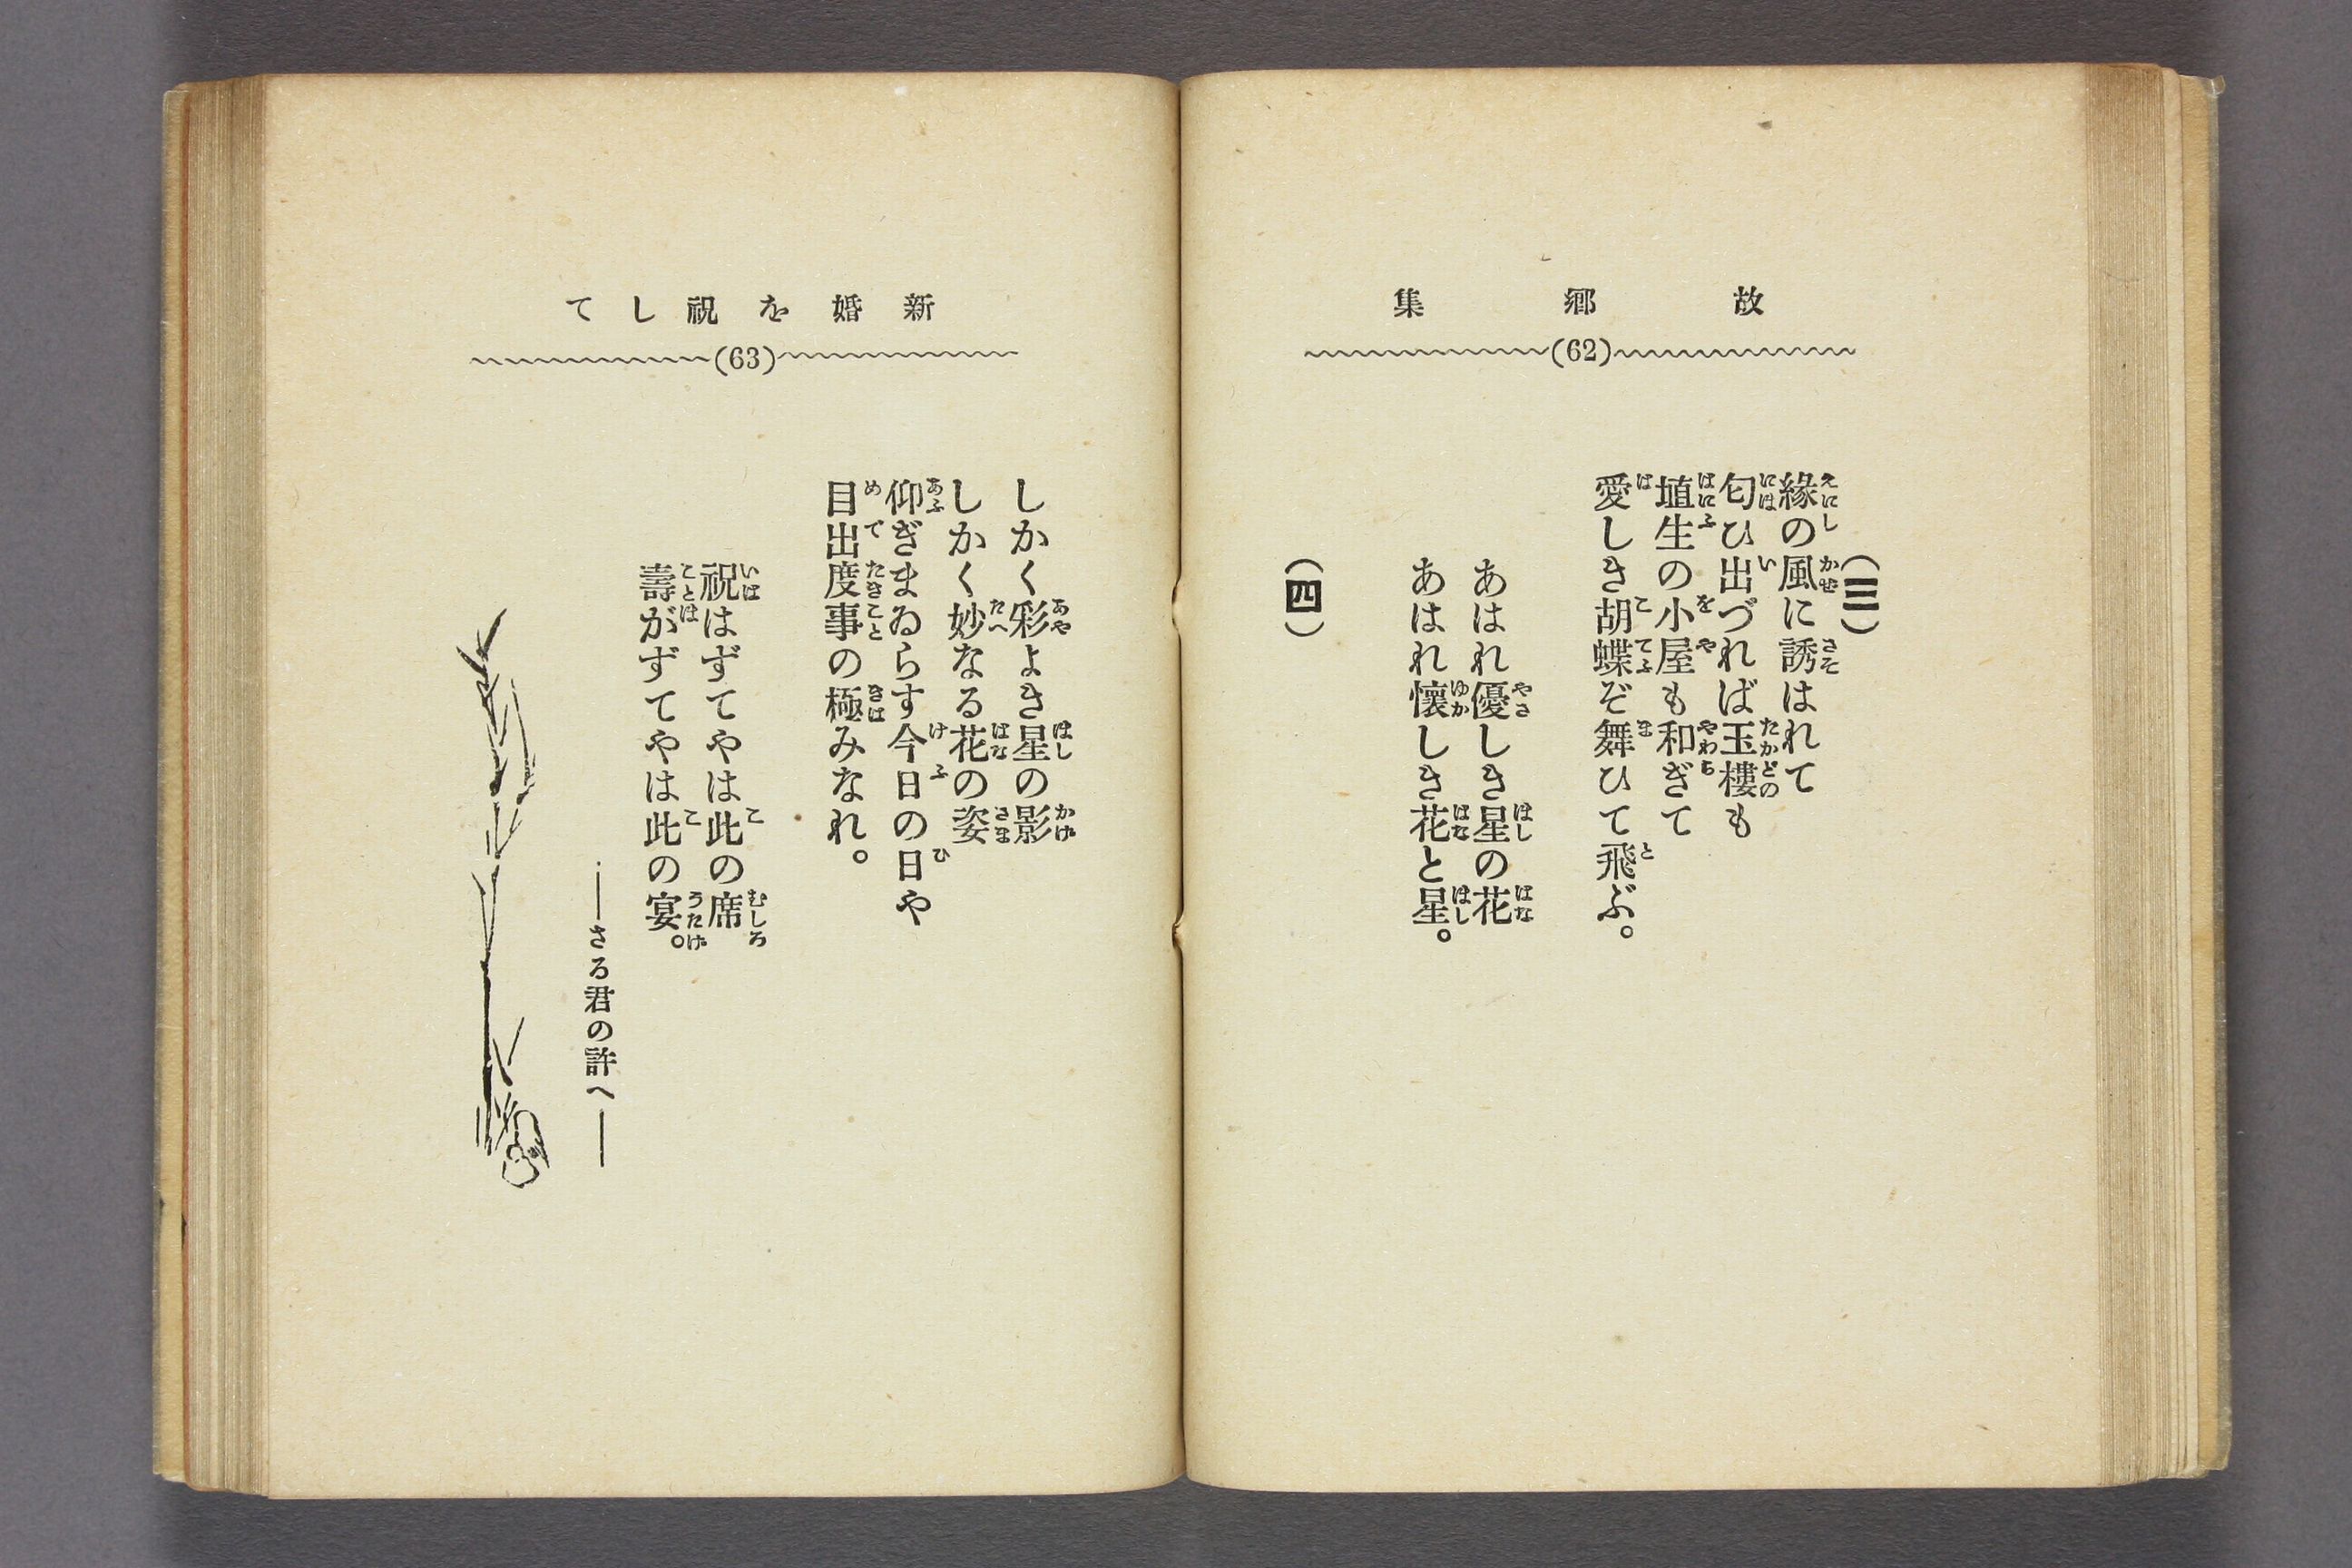 故郷集
(62)
(三)
緣の風に誘はれて
匂ひ出づれば玉樓も
埴生の小屋も和ぎて
愛しき胡蝶ぞ舞ひて飛ぶ。
あはれ優しき星の花
あはれ懷しき花と星。
(四)
新婚を祝して
(63)
しかく彩よき星の影
しかく妙なる花の姿
仰ぎまゐらす今日の日や
目出度事の極みなれ。
祝はずてやは此の席
壽がずてやは此の宴。
――さる君の許へ――